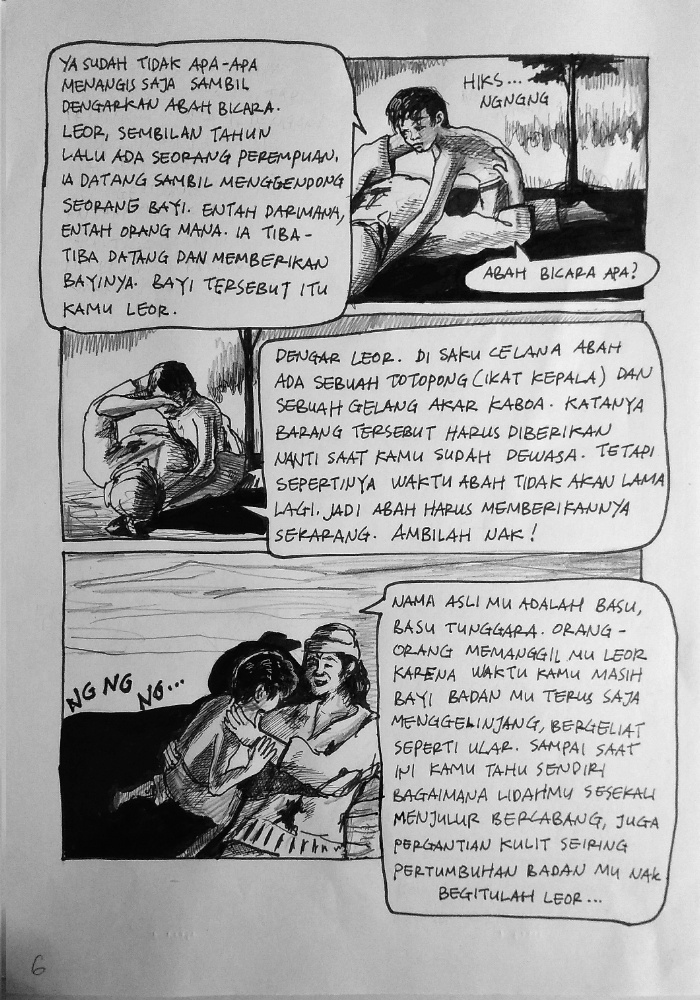 YA SUDAH TIDAK APA-APA
MENANGIS SAJA SAMBIL
DENGARKAN ABAH BICARA.
LEOR, SEMBILAN TAHUN
LALU ADA SEORANG PEREMPUAN.
IA DATANG SAMBIL MENGGENDONG
SEORANG BAYI. ENTAH DARIMANA,
ENTAH ORANG MANA. IA TIBA-
TIBA DATANG DAN MEMBERIKAN
BAYINYA. BAYI TERSEBUT ITU
KAMU LEOR.
HIKS...
NGNGNG
ABAH BICARA APA?
DENGAR LEOR. DI SAKU CELANA ABAH
ADA SEBUAH TOTOPONG (IKAT KEPALA) DAN
SEBUAH GELANG AKAR KABOA. KATANYA
BARANG TERSEBUT HARUS DIBERIKAN
NANTI SAAT KAMU SUDAH DEWASA. TETAPI
SEPERTINYA WAKTU ABAH TIDAK AKAN LAMA
LAGI. JADI ABAH HARUS MEMBERIKANNYA
SEKARANG. AMBILAH NAK!
NG NG
NG...
NAMA ASLI MU ADALAH BASU,
BASU TUNGGARA. ORANG-
ORANG MEMANGGIL MU LEOR
KARENA WAKTU KAMU MASIH
BAYI BADAN MU TERUS SAJA
MENGGELINJANG, BERGELIAT
SEPERTI ULAR. SAMPAI SAAT
INI KAMU TAHU SENDIRI
BAGAIMANA LIDAHMU SESEKALI
MENJULUR BERCABANG, JUGA
PERGANTIAN KULIT SEIRING
PERTUMBUHAN BADAN MU NAK.
BEGITULAH LEOR...
6